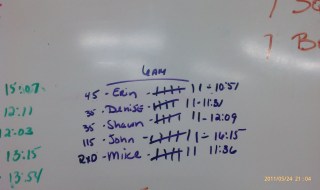 15:07
12:11
12:03
13:15
13:54
45 - Erin - 11 - 10:51
35 - Denise - 11 - 11:31
35 - Shawn - 11 - 12:09
115 - John - 11 - 16:15
Mike - 11 11:36
2011/05/24 21:04